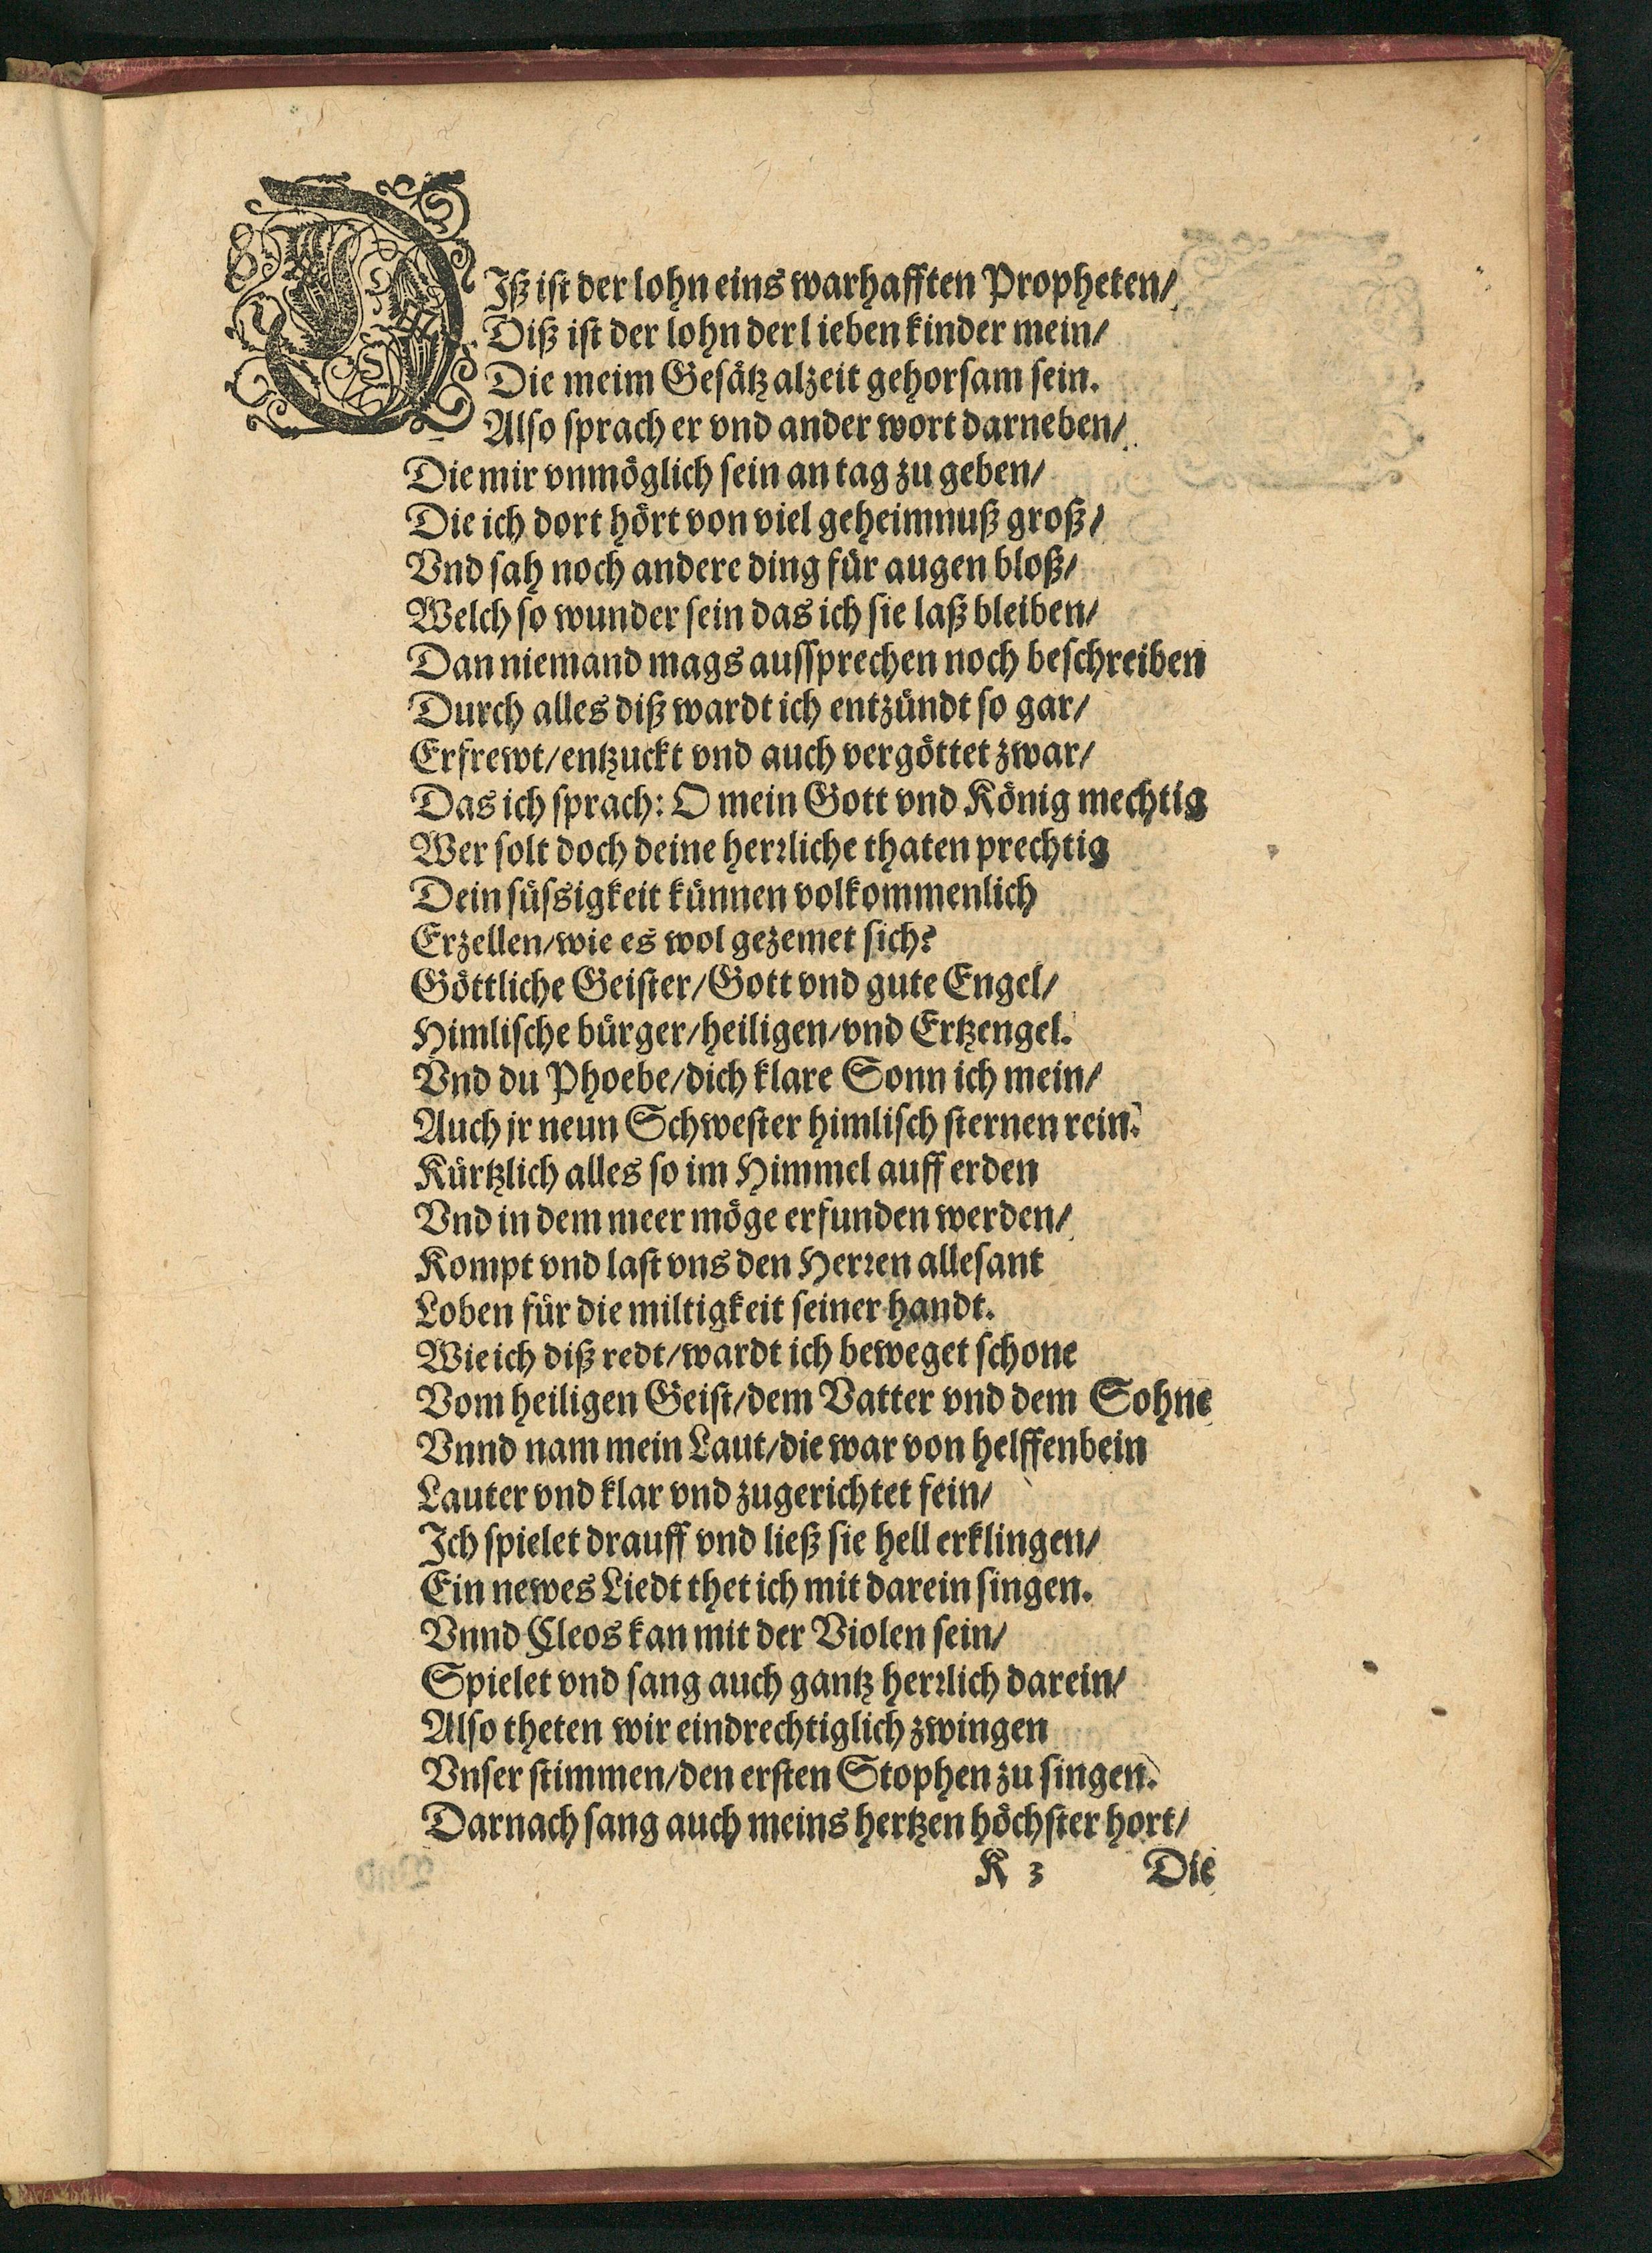 DIß ist der lohn eins warhafften Propheten/
Diß ist der lohn der lieben kinder mein/
Die meim Gesätz alzeit gehorsam sein.
Also sprach er vnd ander wort darneben/
Die mir vnmöglich sein an tag zu geben/
Die ich dort hört von viel geheimnuß groß/
Vnd sah noch andere ding für augen bloß/
Welch so wunder sein das ich sie laß bleiben/
Dan niemand mags aussprechen noch beschreiben
Durch alles diß wardt ich entzündt so gar/
Erfrewt/entzuckt vnd auch vergöttet zwar/
Das ich sprach: O mein Gott vnd König mechtig
Wer solt doch deine herrliche thaten prechtig
Dein süssigkeit künnen volkommenlich
Erzellen/wie es wol gezemet sich?
Göttliche Geister/Gott vnd gute Engel/
Himlische bürger/heiligen/vnd Ertzengel.
Vnd du Phoebe/dich klare Sonn ich mein/
Auch jr neun Schwester himlisch sternen rein.
Kürtzlich alles so im Himmel auff erden
Vnd in dem meer möge erfunden werden/
Kompt vnd last vns den Herren allesant
Loben für die miltigkeit seiner handt.
Wie ich diß redt/wardt ich beweget schone
Vom heiligen Geist/dem Vatter vnd dem Sohne
Vnnd nam mein Laut/die war von helffenbein
Lauter vnd klar vnd zugerichtet fein/
Ich spielet drauff vnd ließ sie hell erklingen/
Ein newes Liedt thet ich mit darein singen.
Vnnd Cleos kan mit der Violen sein/
Spielet vnd sang auch gantz herrlich darein/
Also theten wir eindrechtiglich zwingen
Vnser stimmen/den ersten Stophen zu singen.
Darnach sang auch meins hertzen höchster hort/
K 3 Die